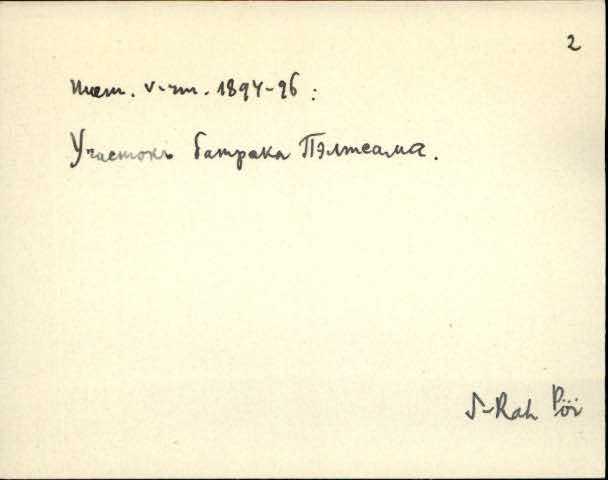 2
Mõem. v-m. 1894-96:
Участокъ батрака Пэлтсама.
S-Rah Pöi